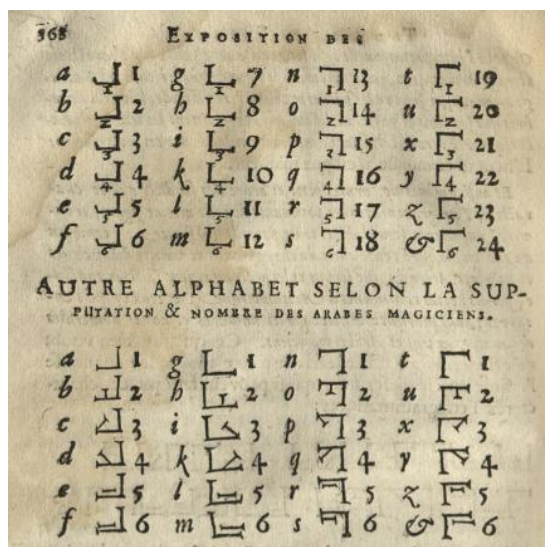 368 EXPOSITION DES
a 1 g 7 n 13 t 19
b 2 h 8 o 14 u 20
c 3 i 9 p 15 x 21
d 4 k 10 q 16 y 22
e 5 l 11 r 17 z 23
f 6 m 12 s 18 & 24
AUTRE ALPHABET SELON LA SUP-
PUTATION & NOMBRE DES ARABES MAGICIENS.
a 1 g 1 n 1 t 1
b 2 h 2 o 2 u 2
c 3 i 3 p 3 x 3
d 4 k 4 q 4 y 4
e 5 l 5 r 5 z 5
f 6 m 6 s 6 & 6